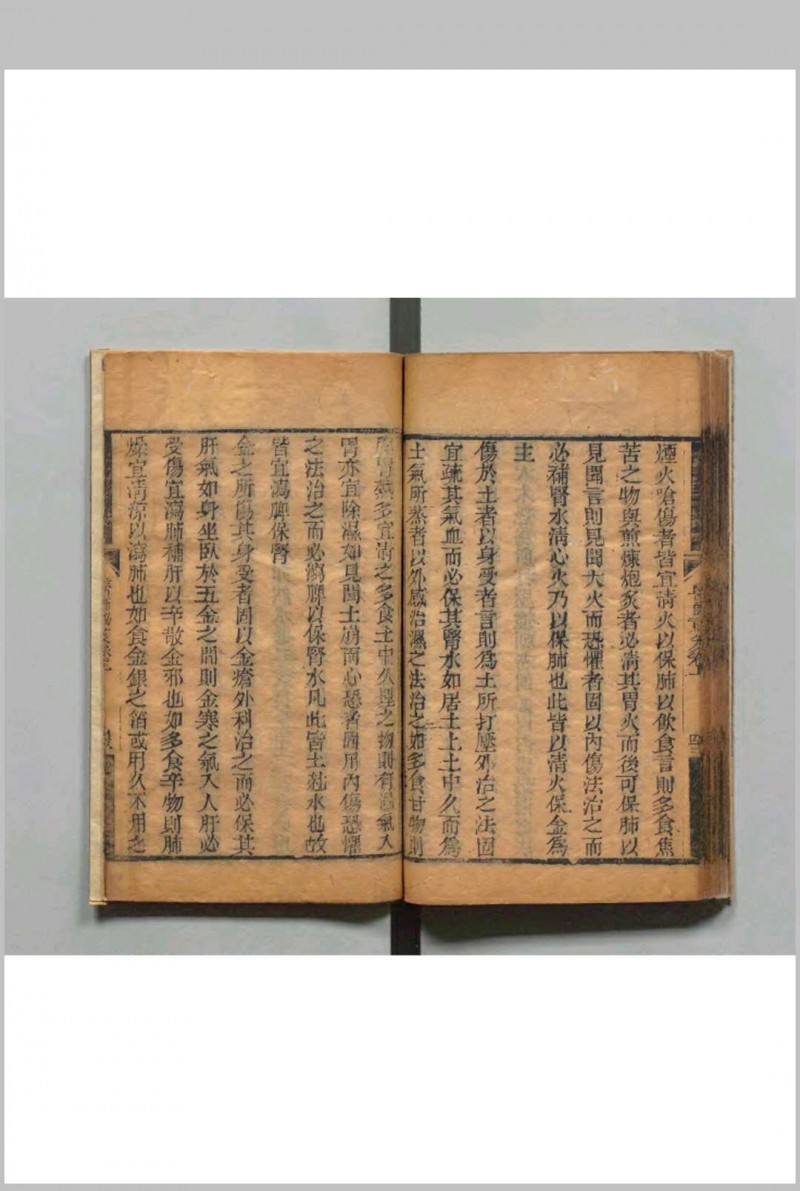 煙火嗆傷者皆宜清火以保肺以飲食言則多食焦
苦之物與薰煉炮炙者必清其胃火而後可保肺以
見聞言則見聞大火而恐懼者固以內傷法治之而
必補腎水清心火乃以保肺也此皆以清火保金爲
主
傷於土者以身受者言則爲土所打壓外治之法固
宜疏其氣血而必保其腎水如居土上土中久而爲
土氣所蒸者以外感治濕之法治之如多食甘物則
胃熱多宜清之多食土中久埋之物則有濕氣入
胃亦宜除濕如見聞土崩而心恐者固用內傷恐懼
之法治之而必瀉脾以保腎水凡此皆土尅水也故
皆宜瀉脾保腎
金之所傷其身受者固以金瘡外科治之而必保其
肝氣如身坐臥於五金之間則金寒之氣入人肝必
受傷宜瀉肺補肝以辛散金邪也如多食辛物則肺
燥宜清涼以瀉肺也如食金銀之箔或用久不用之
卷一
四